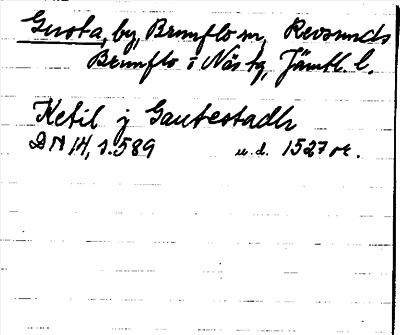 Gusta, by, Brunflo sn, Revsunds
Brunflo i Näs tg, Jämtl. l.
Ketil j Gautestadh
DN 14, s. 589 u.d. 1527 or.